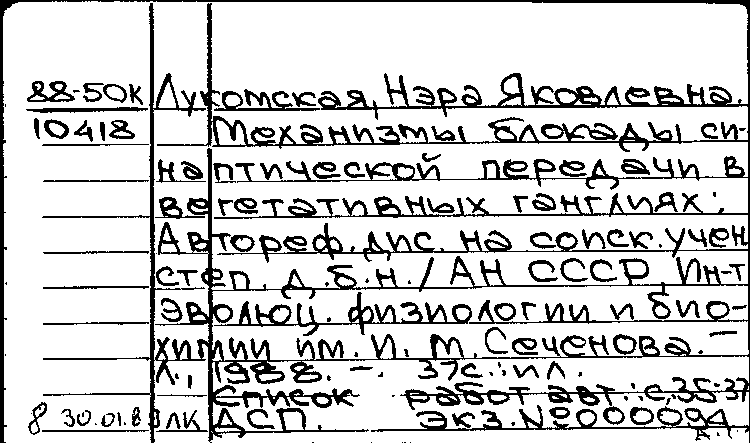 88-50К Лукомская, Нэра Яковлевна.
10418 Механизмы блокады си-
наптической передачи в
вегетативных ганглиях:
Автореф. дис. на соиск. учен
степ. д.б.н. / АН СССР, Ин-т
эволюц. физиологии и био-
химии им. И. М. Сеченова. —
Л., 1988. —. 37с.: ил.
Список работ авт.: с.35-37
8 30.01.89 ЛК ДСП. экз. №000094